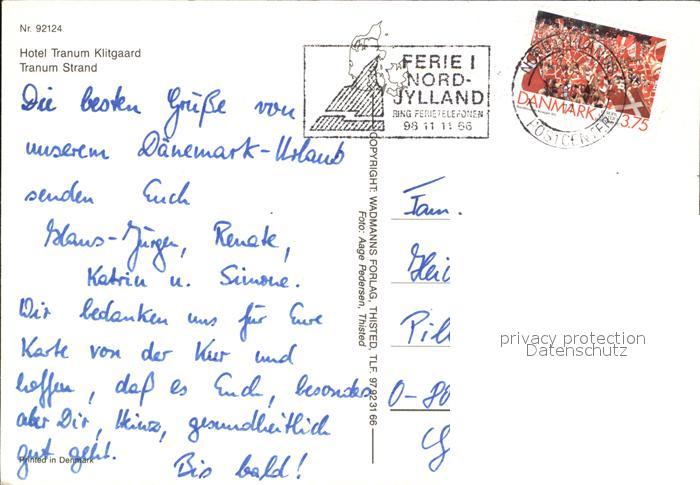 Nr. 92124
Hotel Tranum Klitgaard
Tranum Strand
Die besten Grüße von
unserem Dänemark-Urlaub
senden Euch
Hans-Jürgen, Renate,
Katrin u. Simone.
Wir bedanken uns für Eure
Karte von der Kur und
hoffen, daß es Euch, besonders
aber Dir, Heinz, gesundheitlich
gut geht.
Bis bald!
Printed in Denmark
FERIE I
NORD-
JYLLAND
RING FERIETELEFONEN
98 11 11 66
NORDJYLLANDS
POSTCENTER
DANMARK
3.75
COPYRIGHT: WADMANNS FORLAG, THISTED, TLF. 97 92 31 66
Foto: Aage Pedersen, Thisted
Fam.
O-80
privacy protection
Datenschutz